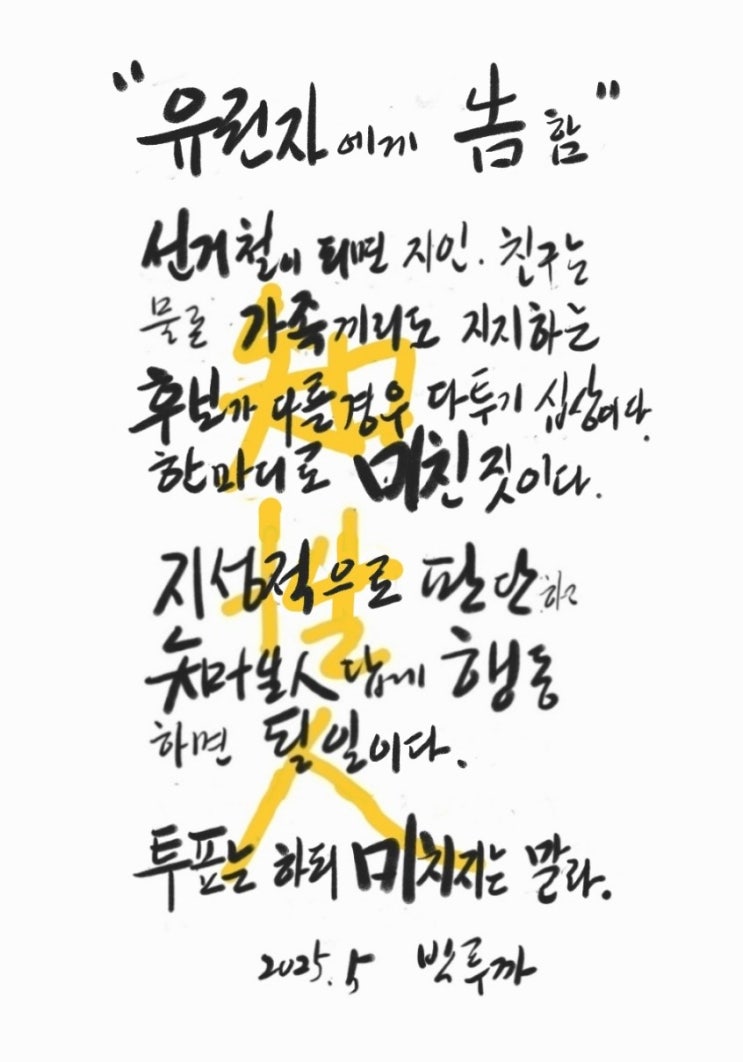 "유권자에게 씀 함"
선거철이 되면 지인. 친구는
물론 가족끼리도 지지하는
후보가 다를 경우 다투기 십상이다.
한마디로 미친 짓이다.
지성적으로 판단하고
知性人답게 행동
하면 될 일이다.
투표는 하되 미치지는 말라.
2025. 5 박루까
知
性
人